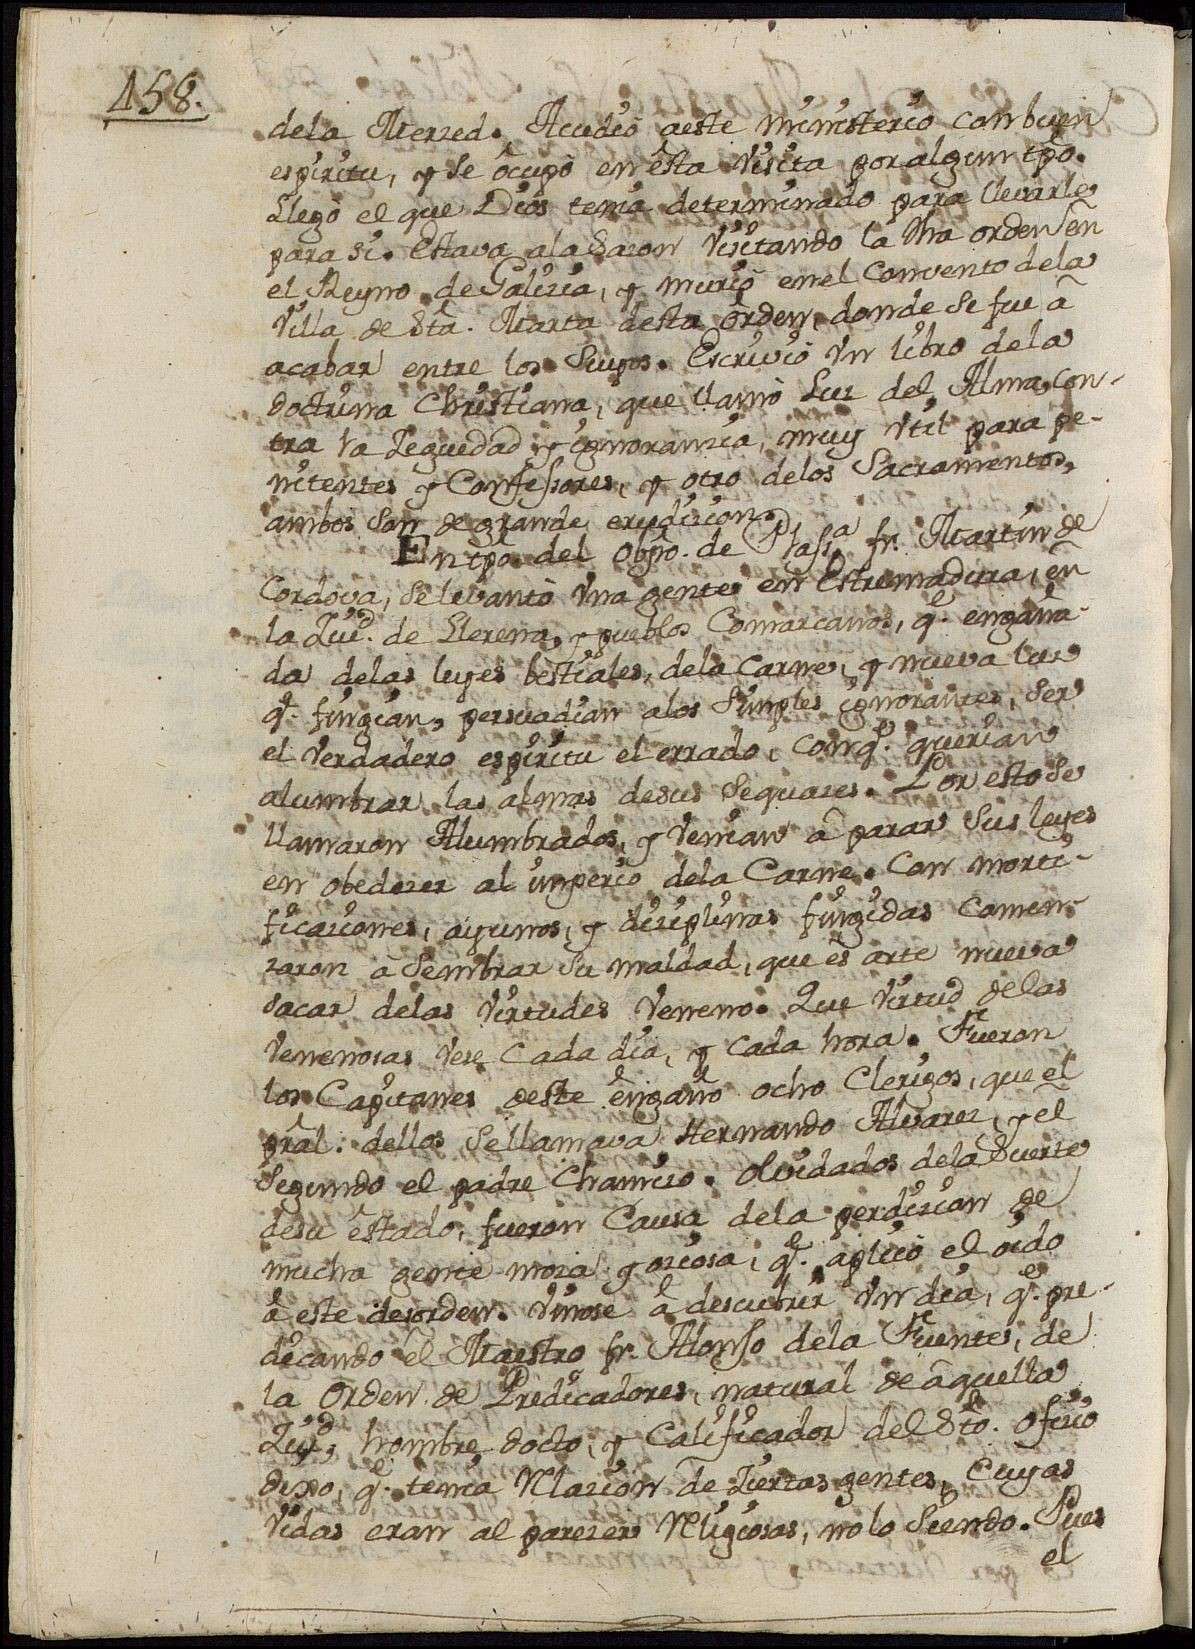 158.
dela Merzed. Acudiò aeste ministerio con buen
espiritu, y se ocupò en esta visita por algun tpo.
Llegò el que Dios tenia determinado para llevarle
para si. Estava ala Sazon visitando la dha orden en
el Reyno de Galizia, y muriò en el Convento dela
Villa de Sta. Marta desta orden, donde se fue à
acabar entre los Suyos. Escriviò vn libro dela
doctrina Christiana, que llamò Luz del Alma con-
tra la Zeguedad y ignorancia, muy vtil para pe-
nitentes y Confessores, y otro delos Sacramentos,
ambos son de grande erudizion.
En tpo. del Obpo. de Plassa. fr. Martin de
Cordova, se levantò vna gente en Estremadura, en
la Ziud. de Llerena, y pueblos Comarcanos, q. engaña-
da delas leyes bestiales, dela Carne, y nueva luz
q. fingian, persuadian alos Simples ignorantes, ser
el verdadero espiritu el errado, con q. querian
alumbrar las almas desus sequazes. Por esto se
llamaron Alumbrados, y venian à parar sus leyes
en obedezer al imperio dela Carne. Con morti-
ficaziones, ayunos, y disziplinas fingidas comen-
zaron à sembrar su maldad, que es arte nueva
sacar delas virtudes veneno. Que virtud delas
venenosas vese cada dia, y cada hora. Fueron
los Capitanes deste engaño ocho Clerigos, que el
pral. dellos se llamava Hernando Alvarez, y el
segundo el padre Chamizo. Olvidados dela suerte
desu estado, fueron Causa dela perdizion de
mucha gente moza y oziosa, q. aplicò el oido
à este desorden. Vinose à descubrir vn dia, q. pre-
dicando el Maestro fr. Alonso dela Fuente, de
la Orden de Predicadores, natural de aquella
Ziud, hombre docto, y Calificador del Sto. Ofizio
dixo, q. tenia Relazion de Ziertas gentes, Cuyas
vidas eran al parezer Religiosas, no lo siendo. Pues
el